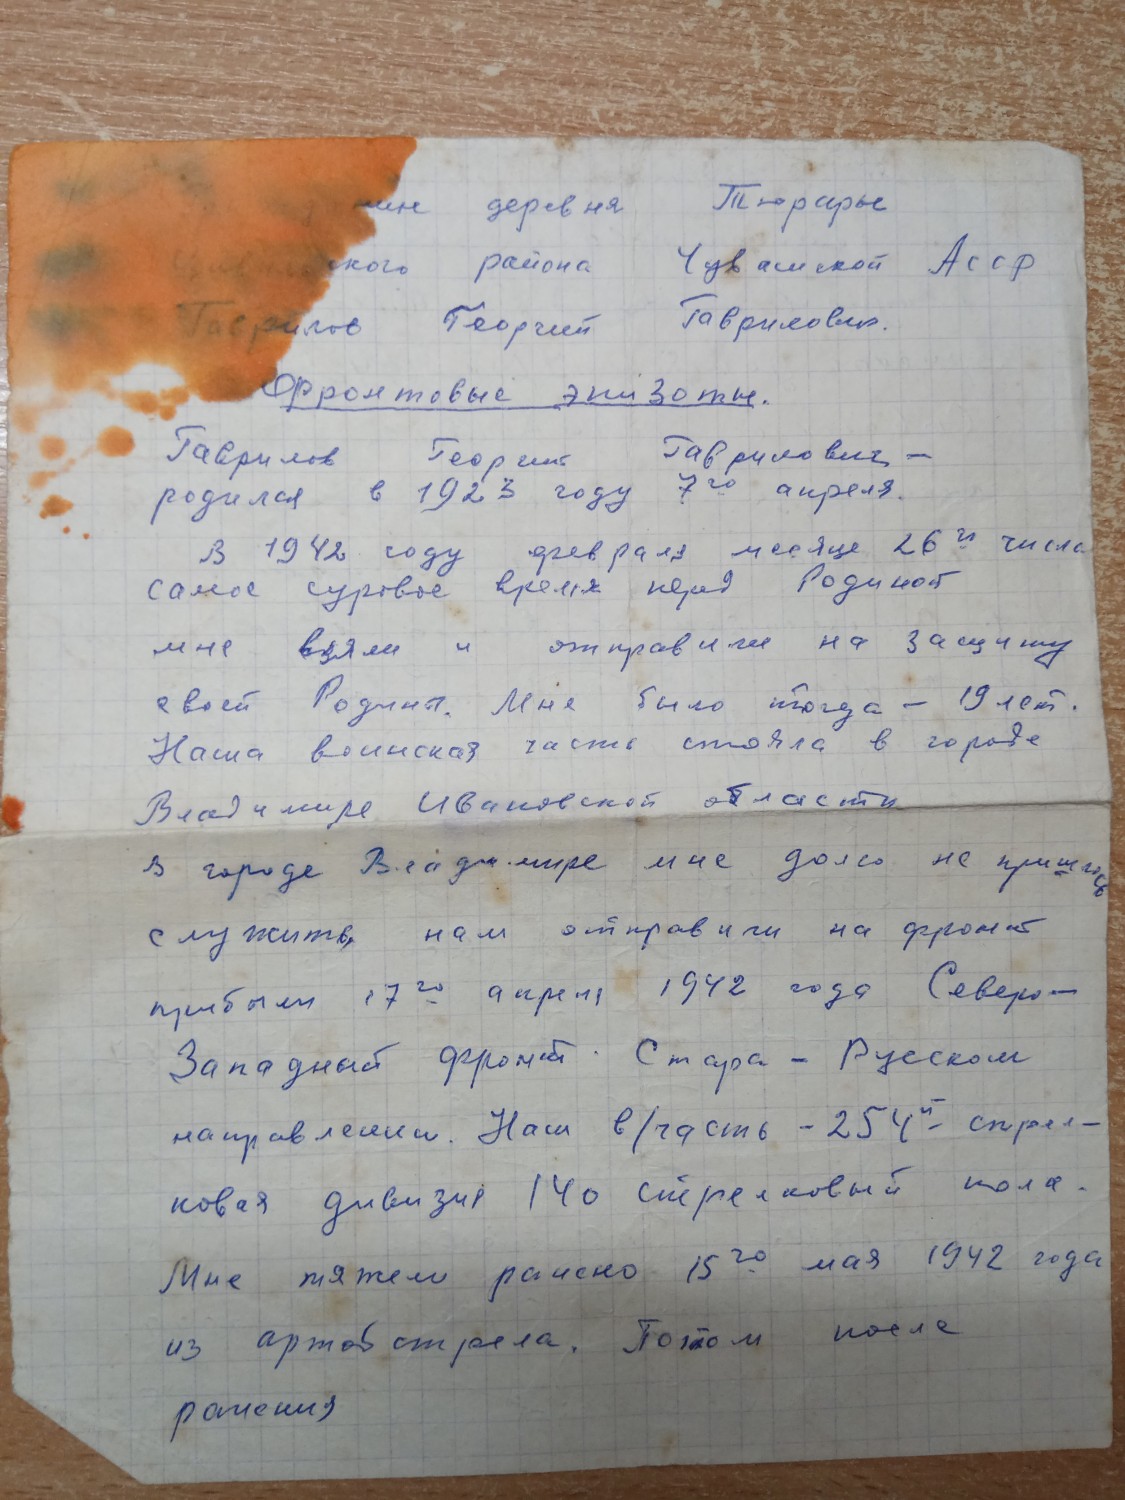 деревня Тюрары
ского района Чувашской Асср
Гаврилов Георгий Гаврилович.
Фронтовые эпизоты.
Гаврилов Георгий Гаврилович —
родился в 1923 году 7го апреля.
В 1942 году февраля месяце 26го числа
самое суровое время перед Родиной
мне взяли и отправили на защиту
своей Родины. Мне было тогда — 19 лет.
Наша воинская часть стояла в городе
Владимире Ивановской области
в городе Владимире мне долго не пришлось
служить, нам отправили на фронт
прибыли 17го апреля 1942 года Северо-
Западный фронт. Стара - Русском
направлении. Наш в/часть - 254й стрел-
ковая дивизия 140 стрелковый полк.
Мне тяжело ранено 15го мая 1942 года
из артобстрела. Потом после
ранения